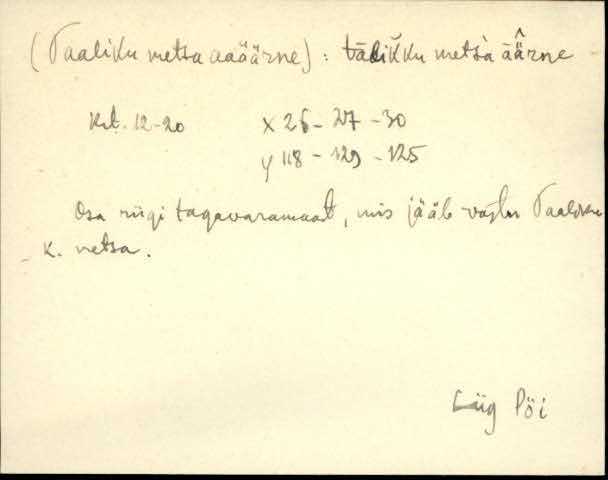 (Taaliku metsa aaäärne) : tälikku metsa äärne
Krt. 12-20 x 26 - 27 - 30
y 118 - 129 - 125
Osa riigi tagavaramaast, mis jääb vastu Taaliku
k. metsa.
Liig Pöi